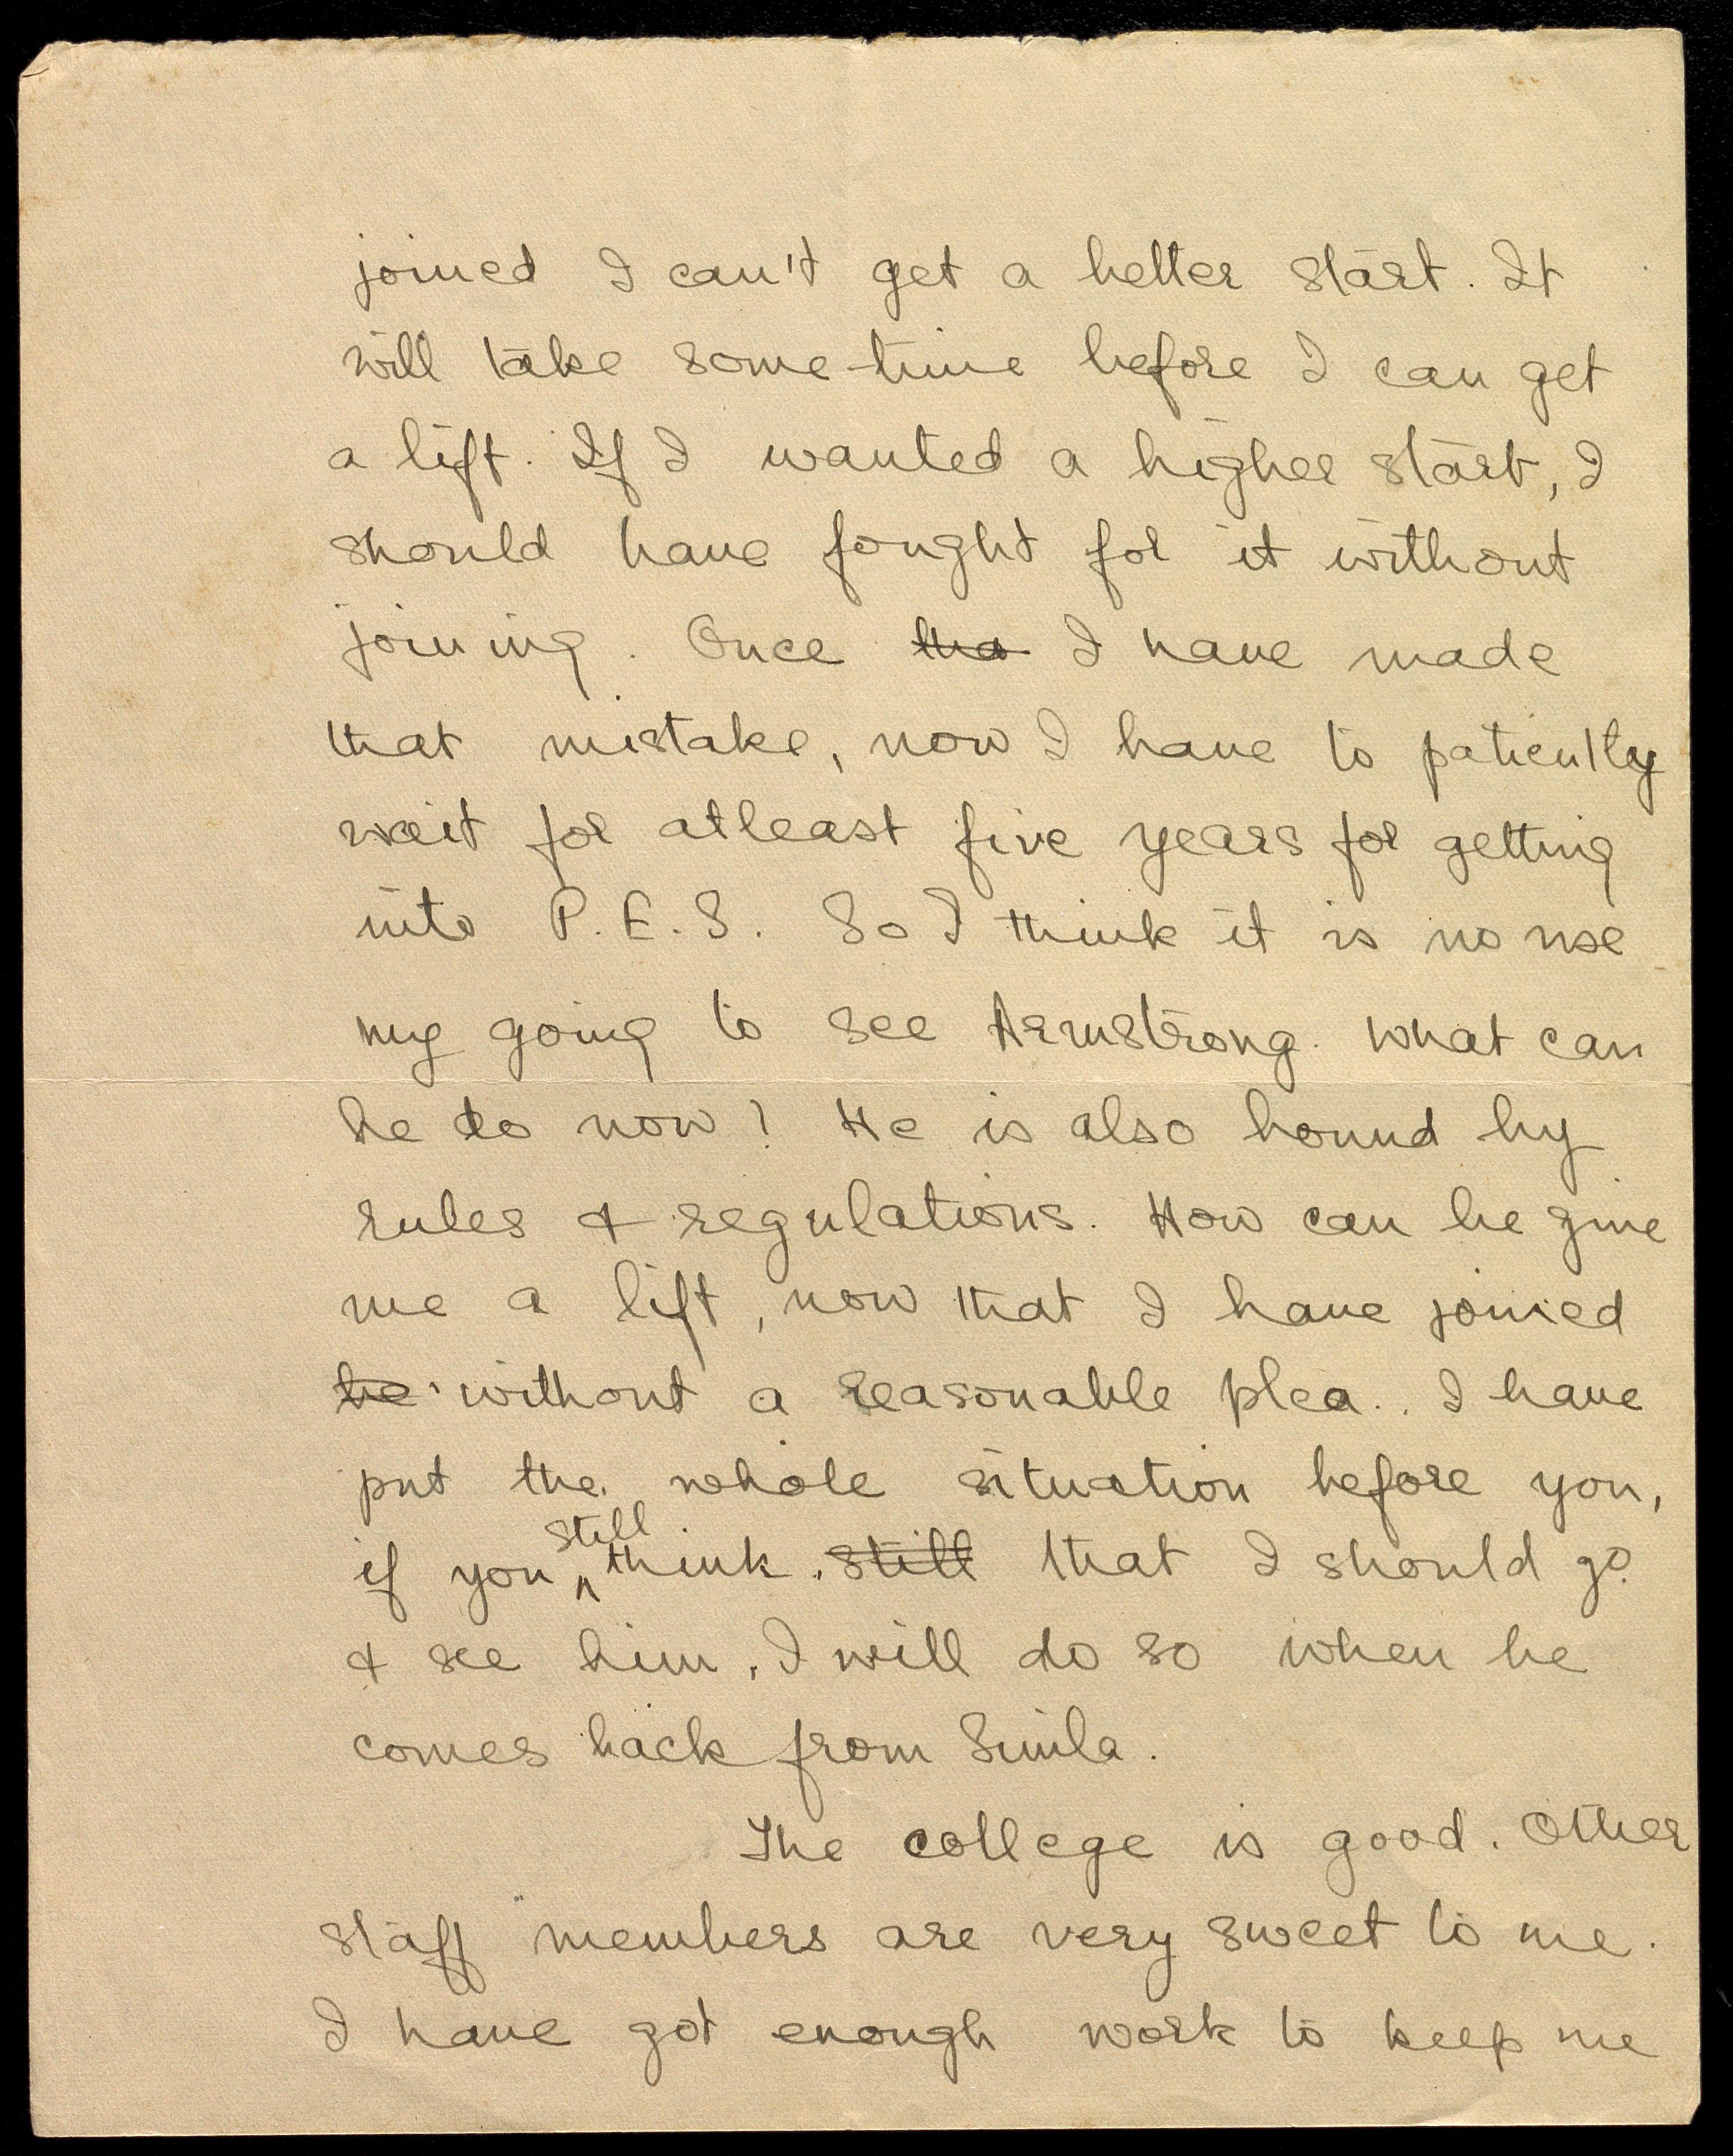 joined I can't get a better start. It
will take some time before I can get
a lift. If I wanted a higher start, I
should have fought for it without
joining. Once tha I have made
that mistake, now I have to patiently
wait for atleast five years for getting
into P.E.S. So I think it is no use
my going to see Armstrong. What can
he do now? He is also bound by
rules & regulations. How can he give
me a lift, now that I have joined
he without a reasonable plea. I have
put the whole situation before you,
if you still think still that I should go
& see him, I will do so when he
comes back from Simla.
The college is good. Other
staff members are very sweet to me.
I have got enough work to keep me